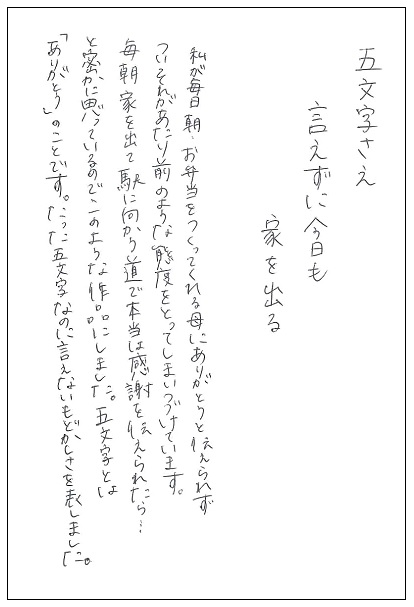 五文字さえ
言えずに今日も
家を出る
私が毎日朝、お弁当をつくってくれる母にありがとうと伝えられず
ついそれがあたり前のような態度をとってしまいつづけています。
毎朝家を出て駅に向かう道で本当は感謝を伝えられたら…
と密かに思っているのでこのような作品にしました。五文字とは
「ありがとう」のことです。たった五文字なのに言えないもどかしさを表しました。